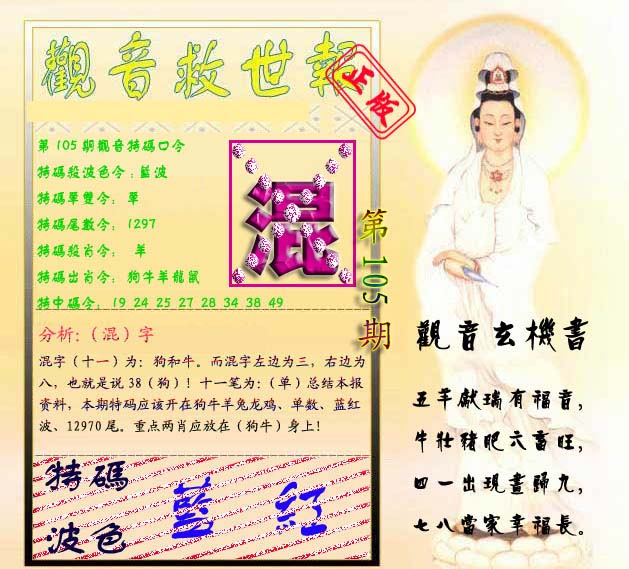 觀音救世報
正版
第105期觀音特碼口令
特碼殺波色令:藍波
特碼單雙令: 單
特碼尾數令: 1297
特碼殺肖令: 羊
特碼出肖令: 狗牛羊龍鼠
特中碼令: 19 24 25 27 28 34 38 49
混
第105期
分析:（混）字
混字（十一）为：狗和牛。而混字左边为三，右边为
八，也就是说 38（狗）！十一笔为：（单）总结本报
资料，本期特码应该开在狗牛羊兔龙鸡、单数、蓝红
波、12970 尾。重点两肖应放在（狗牛）身上！
特碼
波色
藍 紅
觀音玄機書
五羊獻瑞有福音，
牛壯豬肥六畜旺，
四一出現畫歸九，
七八當家幸福長。